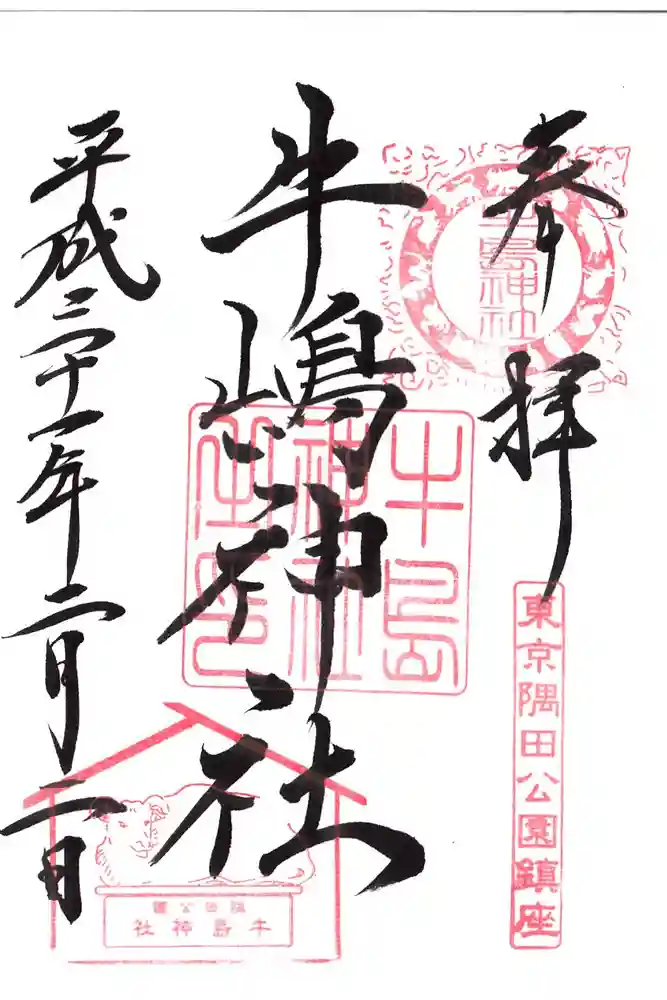 奉拝
牛島神社
東京隅田公園鎮座
牛嶋神社
牛島
神社
之印
隅田公園
牛島神社
平成三十一年二月二日